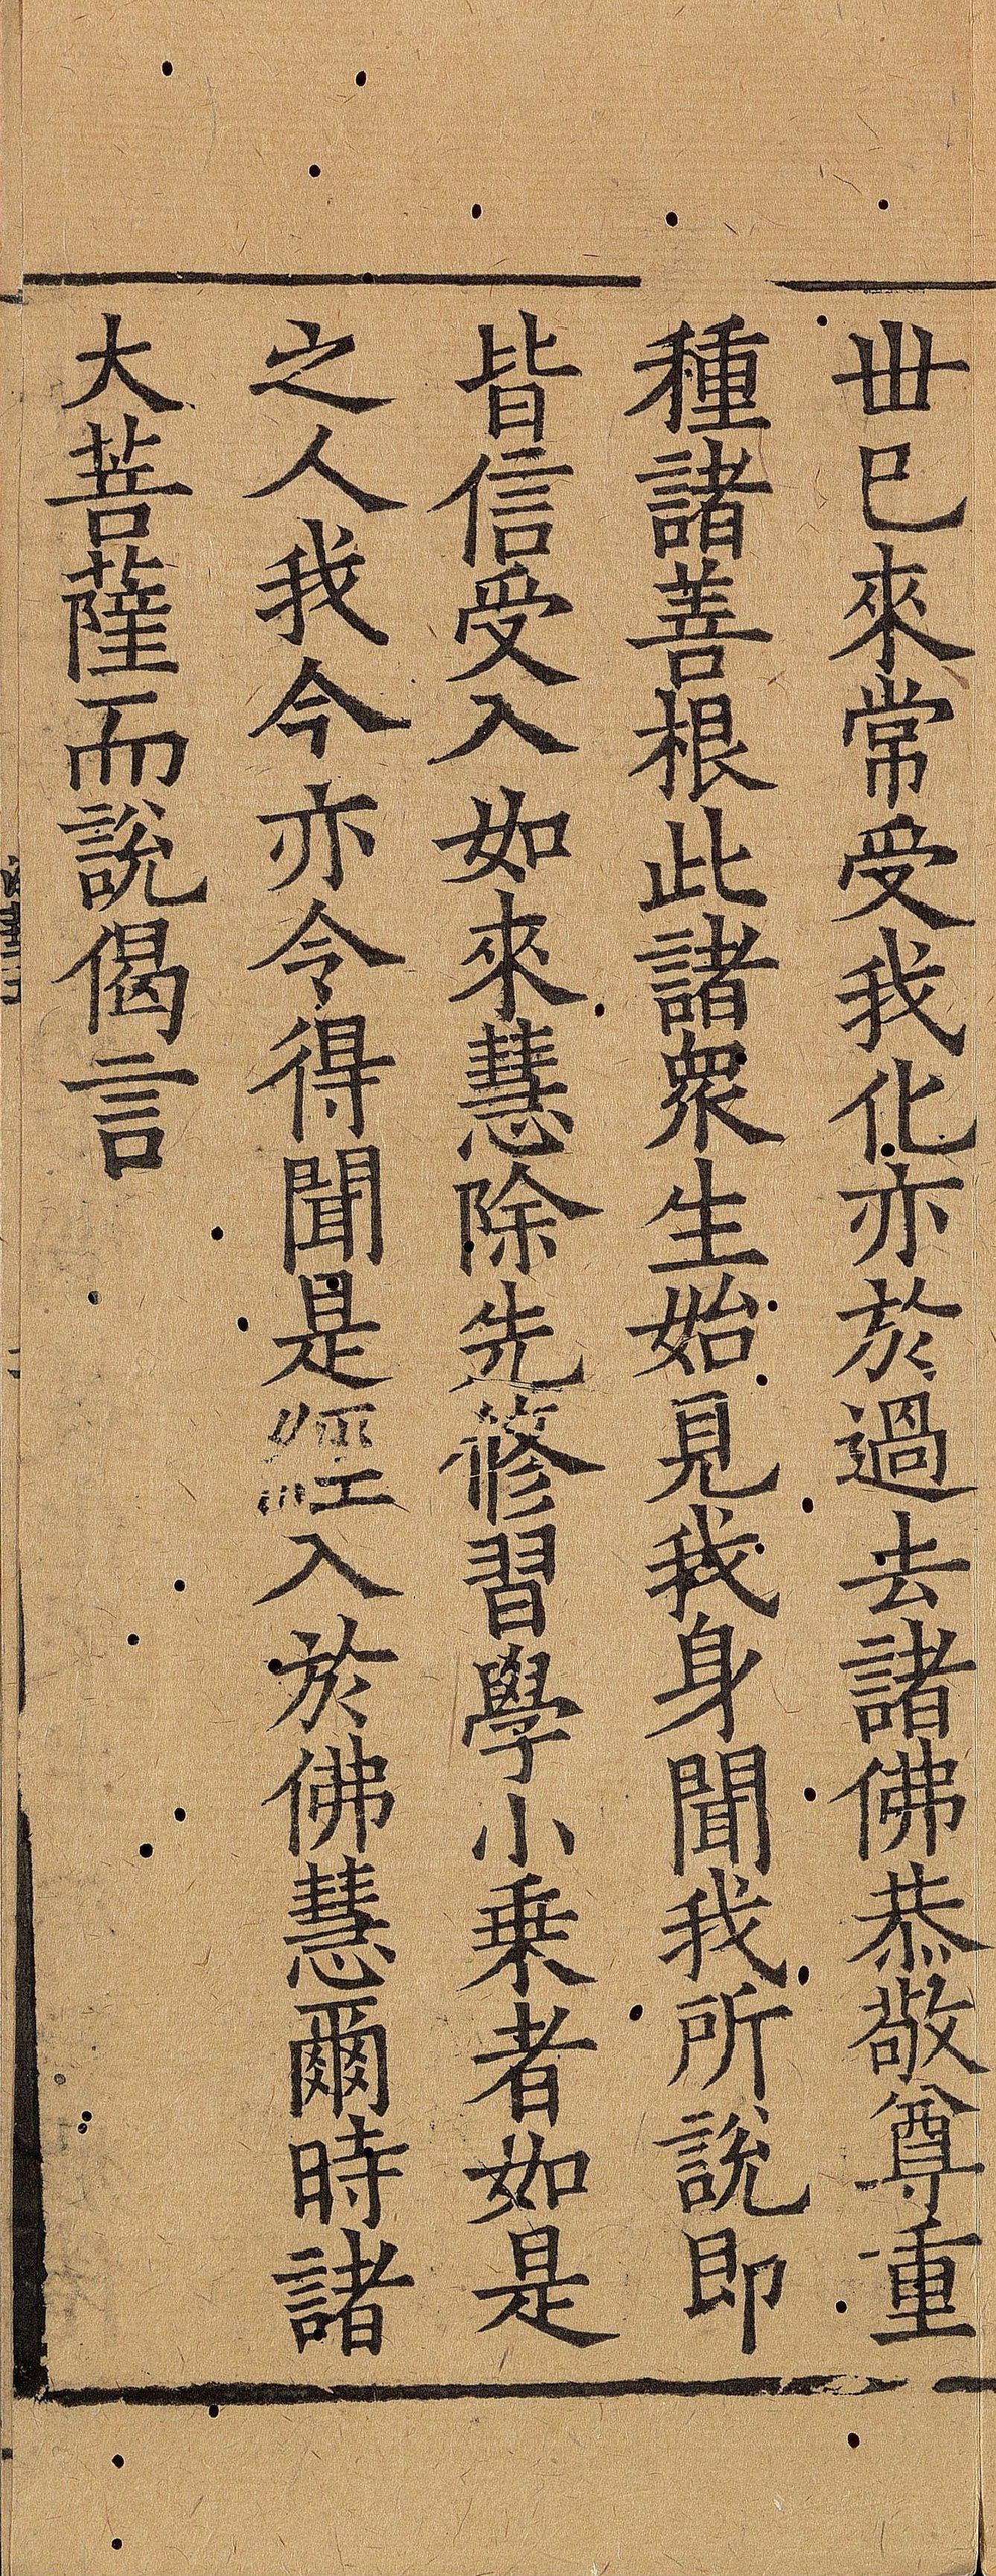 丗已來常受我化亦於過去諸佛恭敬尊重
種諸善根此諸衆生始見我身聞我所說即
皆信受入如來慧除先修習學小乗者如是
之人我今亦令得聞是經入於佛慧爾時諸
大菩薩而說偈言